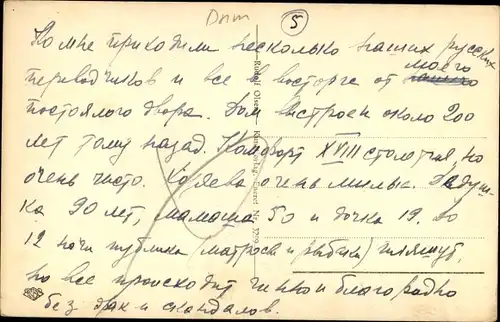 Dnm
5
Ко мне приходили несколько наших русских
переводчиков и все в восторге от моего
постоялого двора. Дом выстроен около 200
лет тому назад. Комфорт XVIII столетия, но
очень чисто. Хозяева очень милые. Дедуш-
ка 90 лет, мамаша 50 и дочка 19. До
12 ночи публика (матросы и рыбаки) пляшут,
но все происходит чинно и благородно
без драк и скандалов.